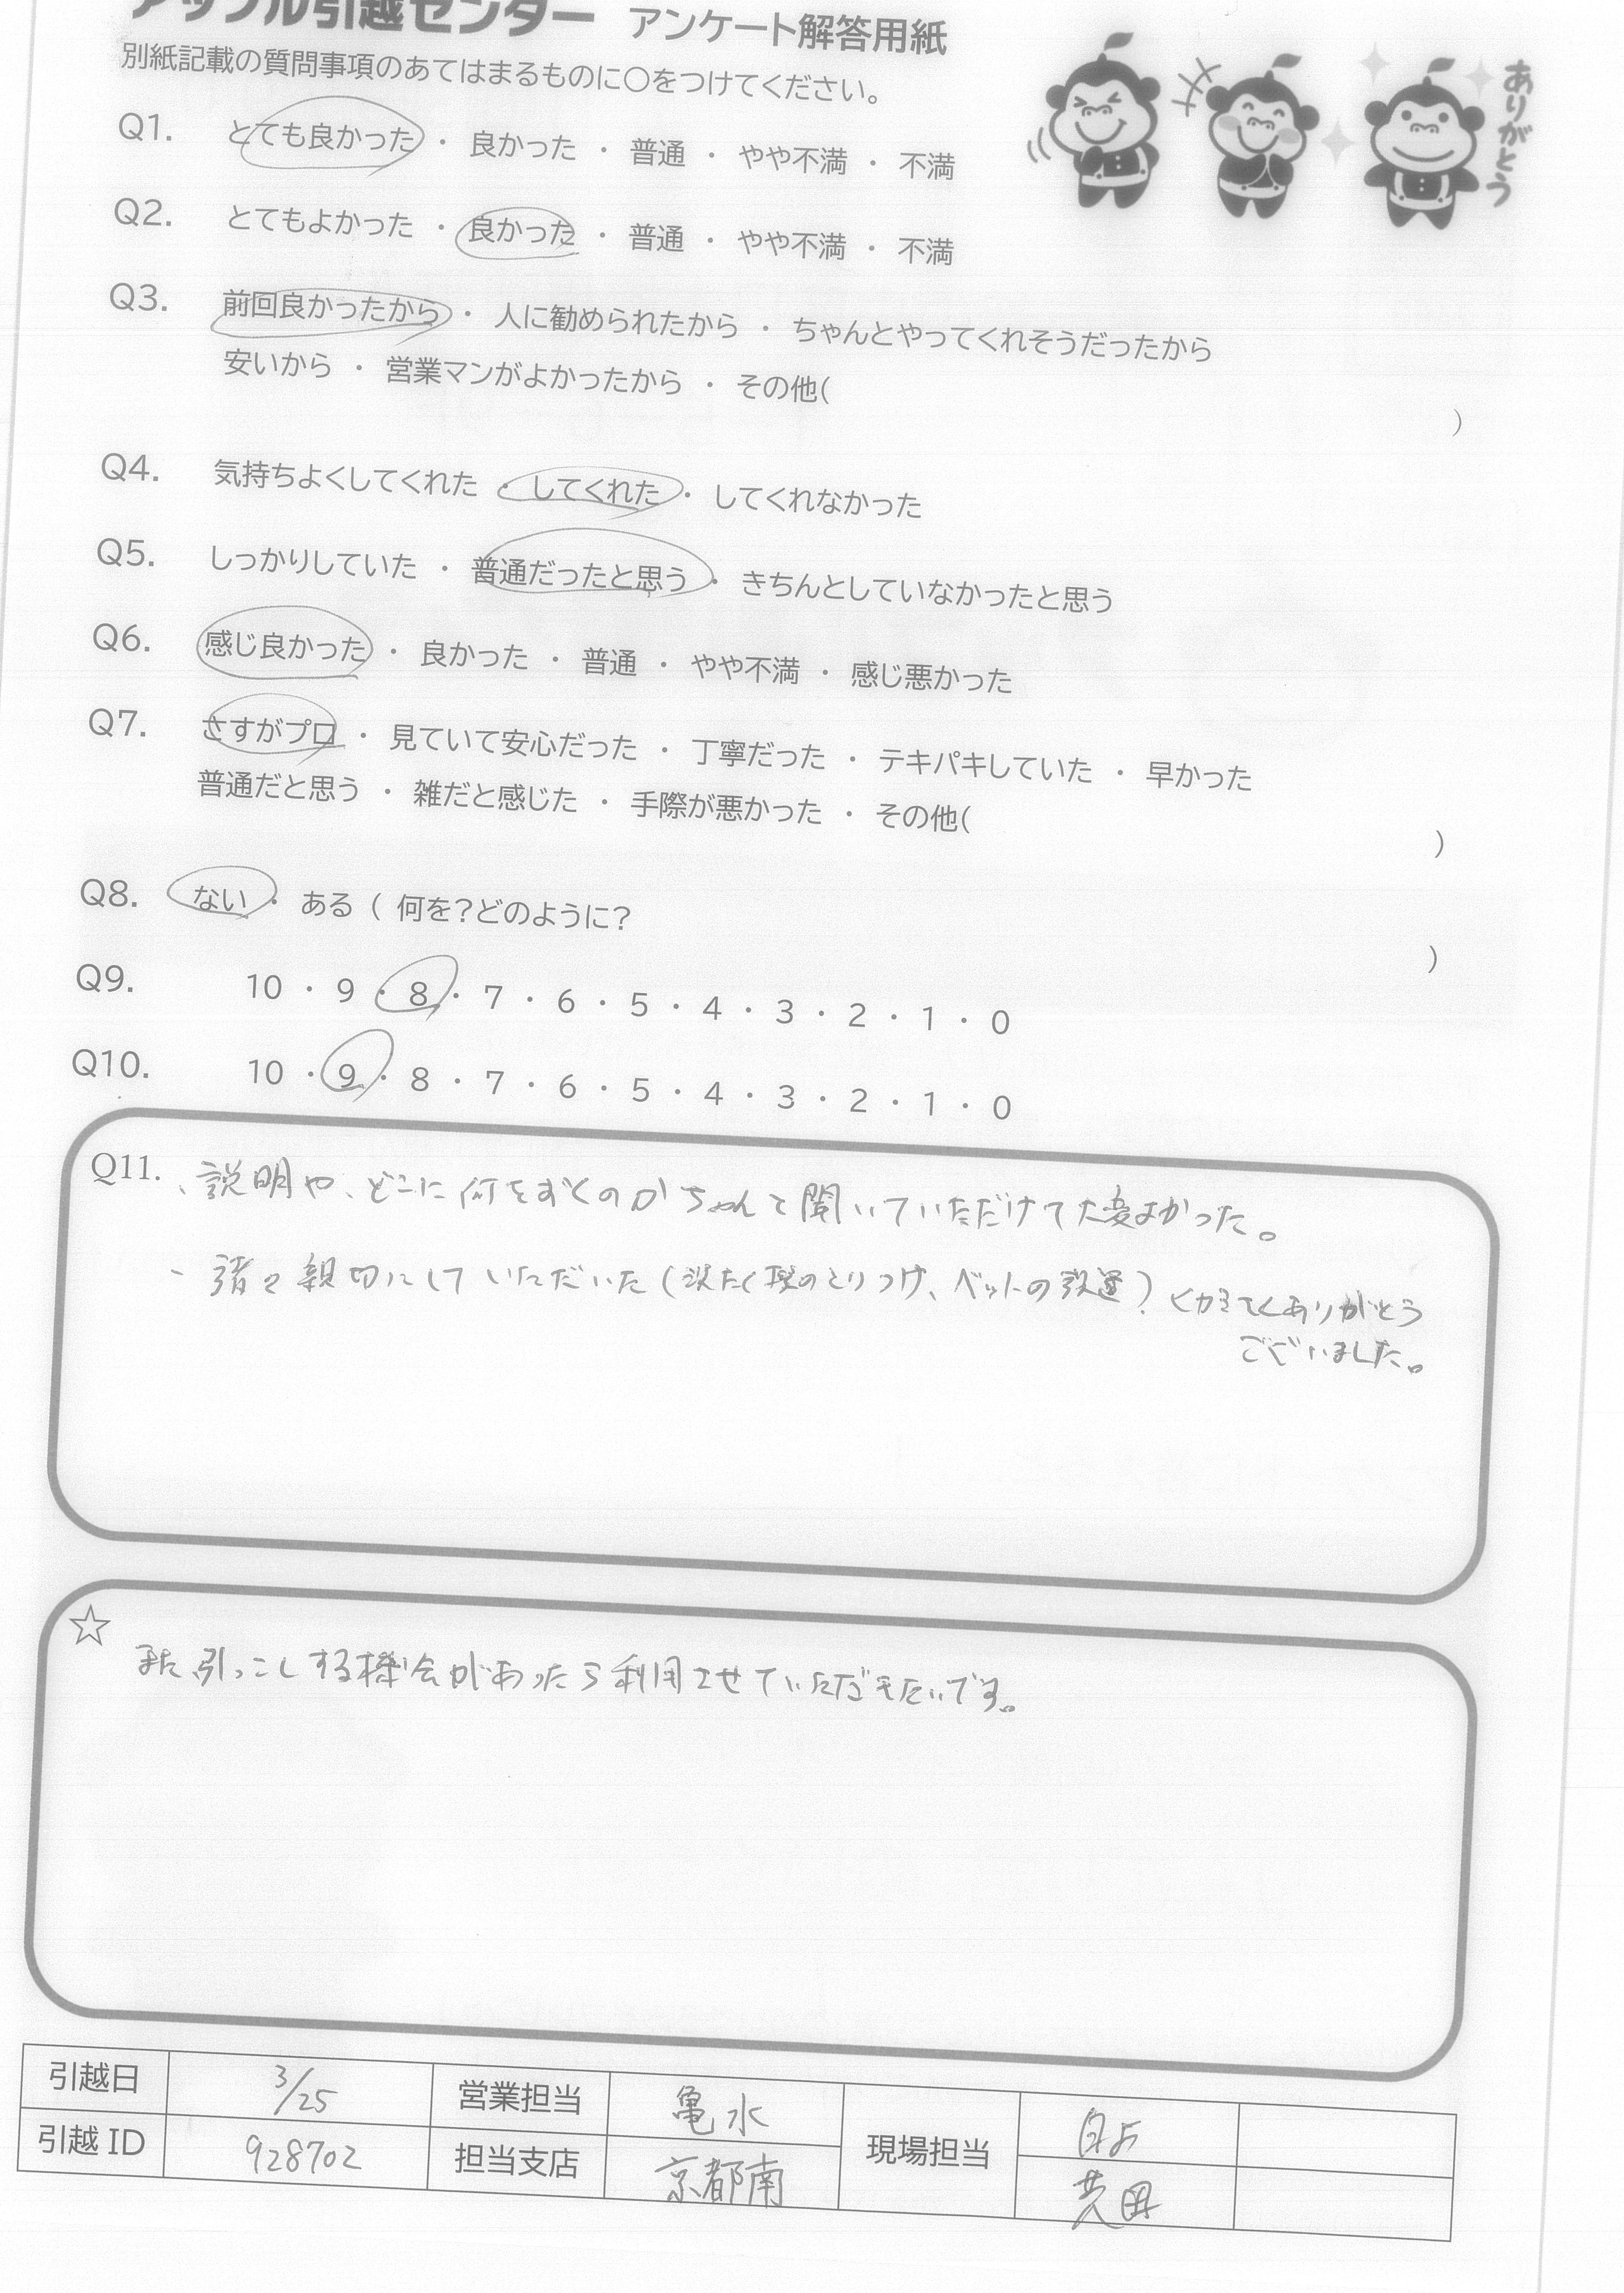 アップル引越センター アンケート解答用紙
別紙記載の質問事項のあてはまるものに〇をつけてください。
ありがとう
Q1. とても良かった ・ 良かった ・ 普通 ・ やや不満 ・ 不満
Q2. とてもよかった ・ 良かった ・ 普通 ・ やや不満 ・ 不満
Q3. 前回良かったから ・ 人に勧められたから ・ ちゃんとやってくれそうだったから
安いから ・ 営業マンがよかったから ・ その他( )
Q4. 気持ちよくしてくれた ・ してくれた ・ してくれなかった
Q5. しっかりしていた ・ 普通だったと思う ・ きちんとしていなかったと思う
Q6. 感じ良かった ・ 良かった ・ 普通 ・ やや不満 ・ 感じ悪かった
Q7. さすがプロ ・ 見ていて安心だった ・ 丁寧だった ・ テキパキしていた ・ 早かった
普通だと思う ・ 雑だと感じた ・ 手際が悪かった ・ その他( )
Q8. ない ・ ある ( 何を?どのように? )
Q9. 10 ・ 9 ・ 8 ・ 7 ・ 6 ・ 5 ・ 4 ・ 3 ・ 2 ・ 1 ・ 0
Q10. 10 ・ 9 ・ 8 ・ 7 ・ 6 ・ 5 ・ 4 ・ 3 ・ 2 ・ 1 ・ 0
Q11. 、説明や、どこに何をおくのかちゃんと聞いていただけて大変よかった。
- 諸々親切にしていただいた(洗たく機のとりつけ、ベットの設置) ありがとう
ございました。
☆ また引っこしする機会があったら利用させていただきたいです。
引越日 3/25 営業担当 亀水 現場担当
引越 ID 928702 担当支店 京都南